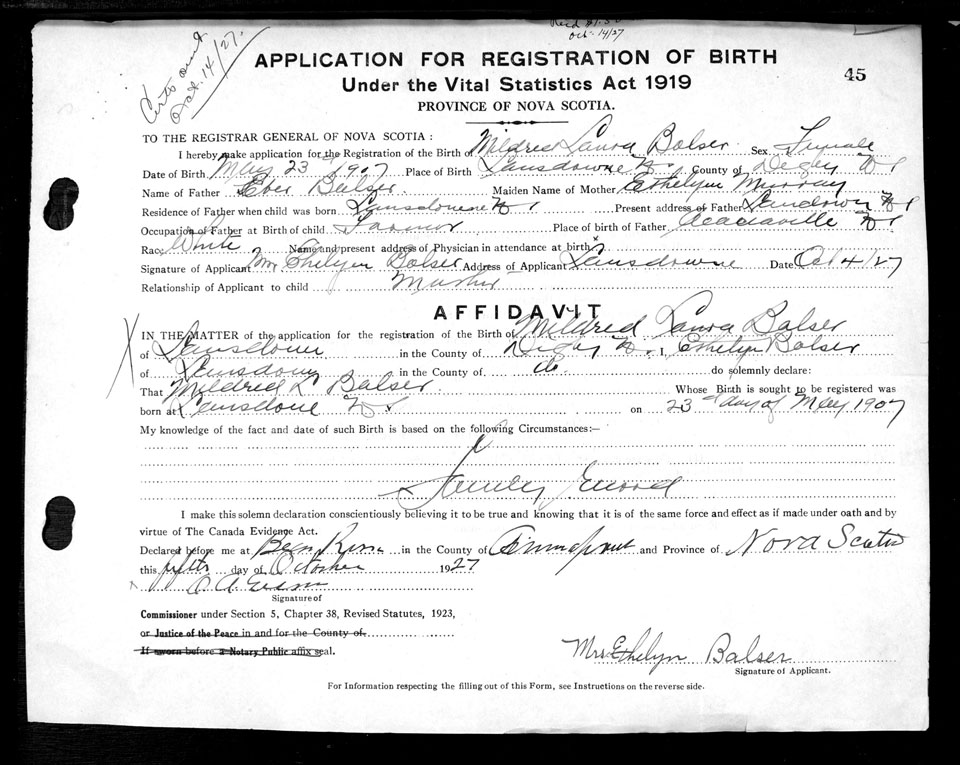 Rec'd $1.50
Oct. 14/27
Certs sent
Oct. 14/27.
APPLICATION FOR REGISTRATION OF BIRTH
Under the Vital Statistics Act 1919
45
PROVINCE OF NOVA SCOTIA.
TO THE REGISTRAR GENERAL OF NOVA SCOTIA :
I hereby make application for the Registration of the Birth of Mildred Laura Balser Sex Female
Date of Birth May 23 1907 Place of Birth Lansdowne N.S. County of Digby N S
Name of Father Eber Balser Maiden Name of Mother Ethelyn Murray
Residence of Father when child was born Lansdowne N S Present address of Father Lansdown N S
Occupation of Father at Birth of child Farmer Place of birth of Father Acaciaville N S
Race White Name and present address of Physician in attendance at birth x
Signature of Applicant Mrs Ethelyn Balser Address of Applicant Lansdowne Date Oct 4/27
Relationship of Applicant to child Mother
AFFIDAVIT
IN THE MATTER of the application for the registration of the Birth of Mildred Laura Balser
of Lansdown in the County of Digby N.S. I, Ethelyn Balser
of Lansdown in the County of do do solemnly declare:
That Mildred L Balser Whose Birth is sought to be registered was
born at Lansdone N S on 23rd day of May 1907
My knowledge of the fact and date of such Birth is based on the following Circumstances:—
Family Record
I make this solemn declaration conscientiously believing it to be true and knowing that it is of the same force and effect as if made under oath and by
virtue of The Canada Evidence Act.
Declared before me at Bear River in the County of Annapolis and Province of Nova Scotia
this fifth day of October 1927
Signature of
Commissioner under Section 5, Chapter 38, Revised Statutes, 1923,
or Justice of the Peace in and for the County of
If sworn before a Notary Public affix seal.
Mrs Ethelyn Balser
Signature of Applicant.
For Information respecting the filling out of this Form, see Instructions on the reverse side.